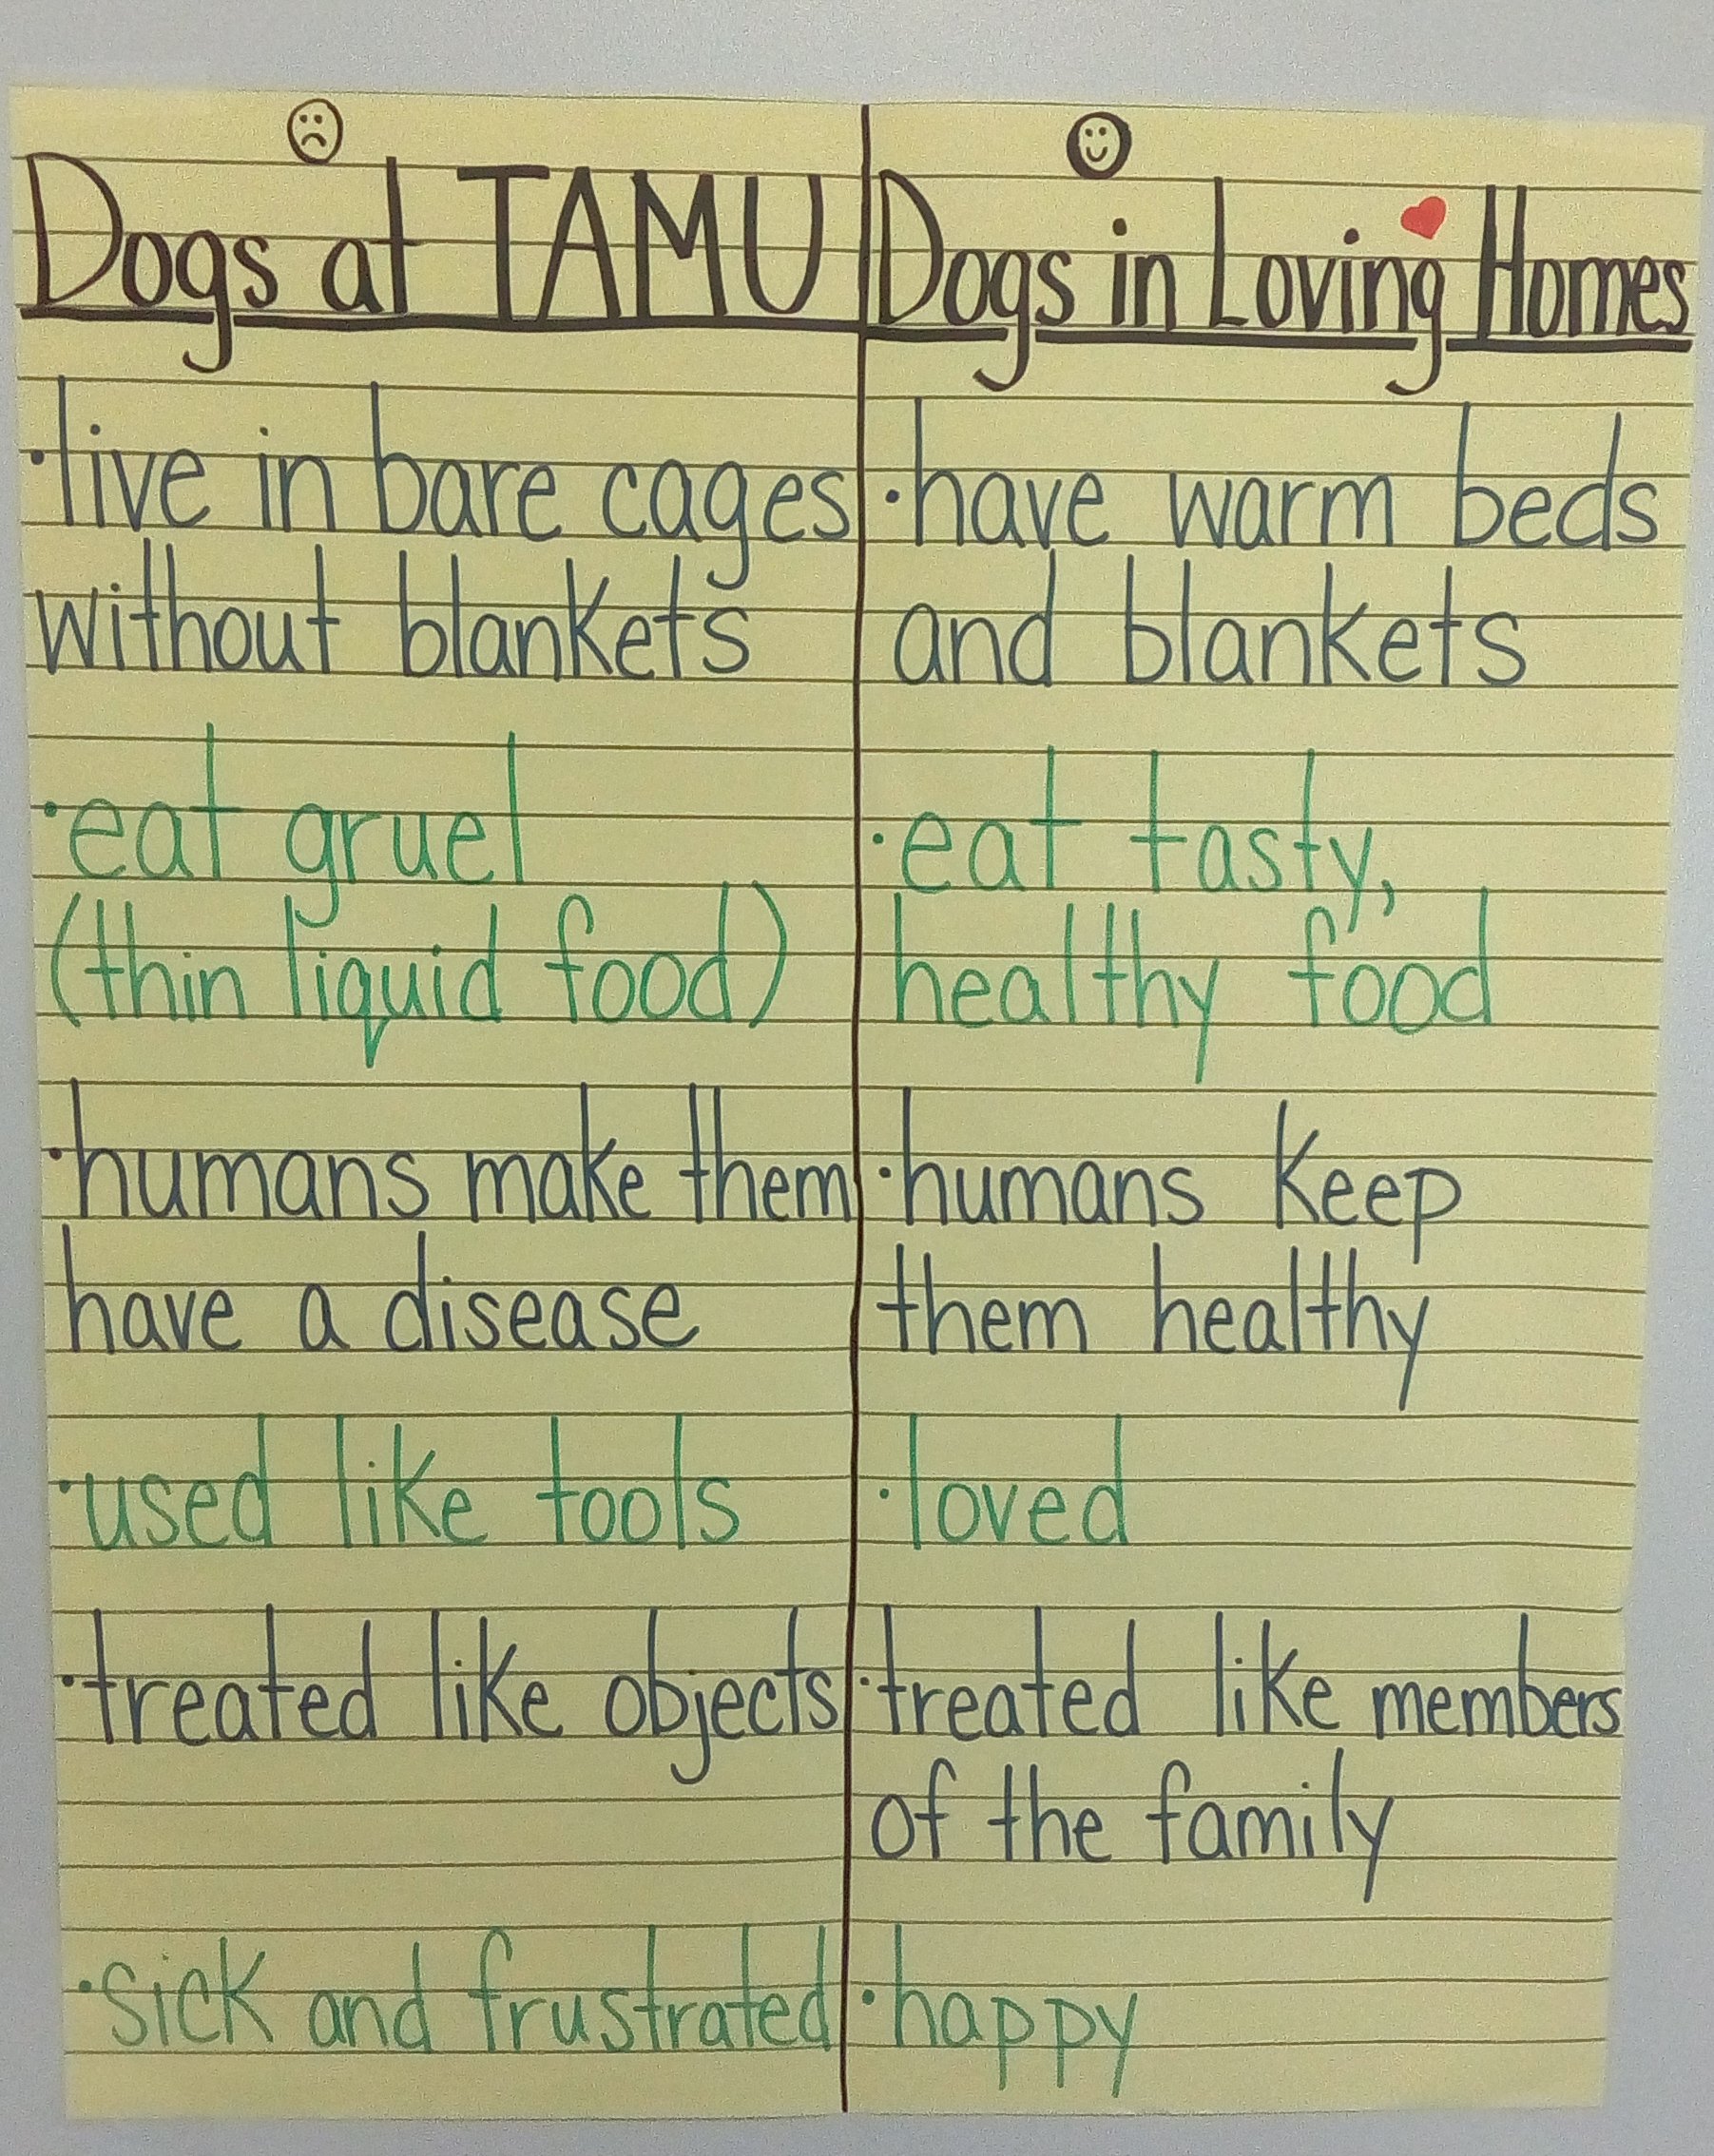 Dogs at TAMU
·live in bare cages
without blankets
·eat gruel
(thin liquid food)
·humans make them
have a disease
·used like tools
·treated like objects
·sick and frustrated
Dogs in Loving Homes
·have warm beds
and blankets
·eat tasty,
healthy food
·humans keep
them healthy
·loved
·treated like members
of the family
·happy